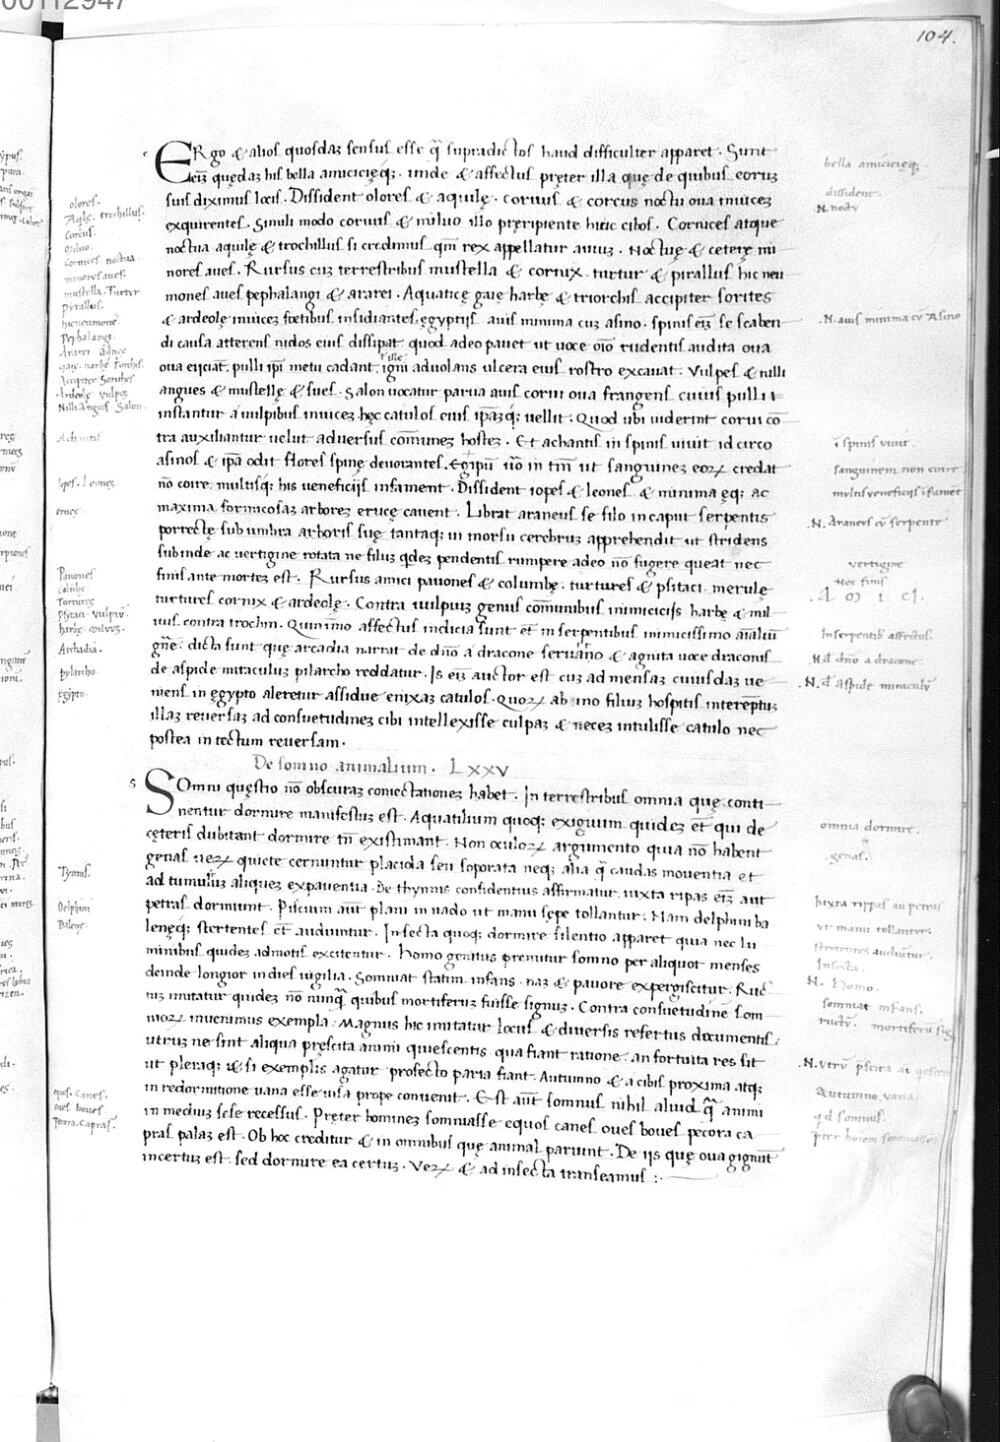 00112947
104.
ERgo & alios quosdaʒ sensus esse q̃ supradictos haud difficulter apparet. Sunt
eiʒ̄ quędaʒ his bella amicicięq;. inde & affectus pręter illa quę de quibus eoruʒ
suis diximus locis. Dissident olores & aquilę. corvus & corcus noctu ova invicez
exquirentes. Simili modo corvus & milvio illo pręripiente huic cibos. Cornices atque
noctua aquilę & trochillus si credimus qm̄ rex appellatur aviuʒ. Noctuę & ceterę mi
nores aves. Rursus cuʒ terrestribus mustella & cornix. turtur & pirallus hic neu
mones aves pephalangi & ararei. Aquaticę gaię harbę & triorchis accipiter sorites
& ardeolę invicez foetibus insidiantes. ęgyptijs avis minima cuʒ asino. spinis eiʒ̄ se scaben
di causa atterens nidos eius dissipat quod adeo pavet ut voce oīo rudentis audita ova
ova eijciat. pulli ip̄i metu cadant. igni advolans ulcera eius rostro excavat. Vulpes & nilli
angues & mustellę & sues. Salon vocatur parva avis corvi ova frangens cuius pulli i
instantur a vulpibus invicez hęc catulos eius ip̄azq; vellit. Quod ubi viderint corvi cō
tra auxiliantur velut adversus com̄unez hostez. Et achantis in spinis vivit id circo
asinos & ip̄a odit flores spinę devorantes. Egipiū v̄o in tm̄ ut sanguinez eoꝝ credāt
nō coire. multisq; his veneficijs infament. Dissident iopes & leones & minima ęq; ac
maxima formicosaʒ arborez erucę cavent. Librat araneus se filo in caput serpentis
porrectę sub umbra arboris suę tantaq; vi morsu cerebruʒ apprehendit ut stridens
subinde ac vertigine rotata ne filuʒ qdez pendentis rumpere adeo nō fugere queat nec
finis ante mortez est. Rursus amici pavones & columbę. turtures & psitaci merulę
turtures cornix & ardeolę. Contra vulpiuʒ genus com̄unibus inimicicijs harbę & mil
vus contra trochin. Quin imo affectus indicia sunt et̄ in serpentibus inimicissimo aīaliū
gn̄e. dicta sunt quę arcadia narrat de dn̄o a dracone servāto & agnita voce draconis
de aspide miraculuʒ pilarcho reddatur. Is eiʒ̄ auctor est cuʒ ad mensaʒ cuiusdaʒ ve
niens in ęgypto aleretur assidue enixaʒ catulos. Quoꝝ ab uno filiuʒ hospitis interęptuʒ
illaʒ reversaʒ ad consuetudinez cibi intellexisse culpaʒ & necez intulisse catulo nec
postea in tectum reversam.
De somno animalium. LXXV
SOmni questio nō obscuraʒ coniectationez habet. In terrestribus omnia quę conti
nentur dormire manifestuʒ est. Aquatilium quoq; exiguum quidez et̄ qui de
cęteris dubitant dormire tn̄ existimant. Non oculoꝝ argumento quia nō habent
genas veꝝ quiete cernuntur placida seu soporata neq; alia q̃ caudas moventia et
ad tumultuʒ aliquez expaventia. De thynnis confidentius affirmatur. iuxta ripas eiʒ̄ aut
petras dormiunt. Pisciuʒ aūt plani in vado ut manu sępe tollantur. Nam delphini ba
lenęq; stertentes et̄ audiuntur. Insecta quoq; dormire silentio apparet quia nec lu
minibus quidez admotis excitentur. Homo genitus premitur somno per aliquot menses
deinde longior indies vigilia. Somniat statim infans. naʒ & pavore expergiscitur. Ruc̄
tuʒ imitatur quidez nō nunq̃ quibus mortiferuʒ fuisse signuʒ. Contra consuetudinē som
nioꝝ invenimus exempla. Magnus hic imitatur locus & diversis refertus documentis.
utruʒ ne sint aliqua pręscita animi quiescentis qua fiant ratione. an fortuita res sit
ut pleraq;. & si exemplis agatur profecto paria fiant. Autumno & a cibis proxima atq;
in redormitione vana esse visa prope convenit. Est aūt somnus nihil aliud q̃ animi
in mediuʒ sese recessus. Pręter hominez somniasse equos canes oves boves pecora ca
pras palaʒ est. Ob hoc creditur & in omnibus quę animal pariunt. De ijs quę ova gignūt
incertuʒ est. sed dormire ea certuʒ. Veꝝ & ad insecta transeamus :.
olores.
Aqlę. trochillus.
Corcus.
cornices noctua.
minores aves.
mustella. Turtur
pyrallus.
hicneumone
Pephalangi.
Accipiter Sorites
Ardeole vulpes
Nilli anguis Salon.
Achantis
Iopes. Leones.
eruce.
Pavones
Colūbe.
Turtures
Psitaci. vulpiū.
harbe. milvus.
Archadia.
pylarcho.
ęgypto.
Tynnis.
Delphini
Balene.
equos. Canes.
oves boves
pecora. capras.
bella amicicięq.
dissident.
N. noctu
.N. avis minima cū Asino
i spinis vivit.
sanguinem non coire
multis veneficijs ifament
.N. Araneus cū serpente
vertigine
Nec finis
In serpentib' affectus.
N. d' dn̄o a dracone.
.N. d' aspide miraculū
omnia dormire.
genas.
iuxta rippas au petras
ut manu tollantur.
stertentes audiūtur.
Insecta.
N. Homo.
somniat infans.
ructū. mortiferū sig
.N. utrū p̄scita ai qescen
Autumno vana
q̄d somnus.
p̄ter hoīem somniasse